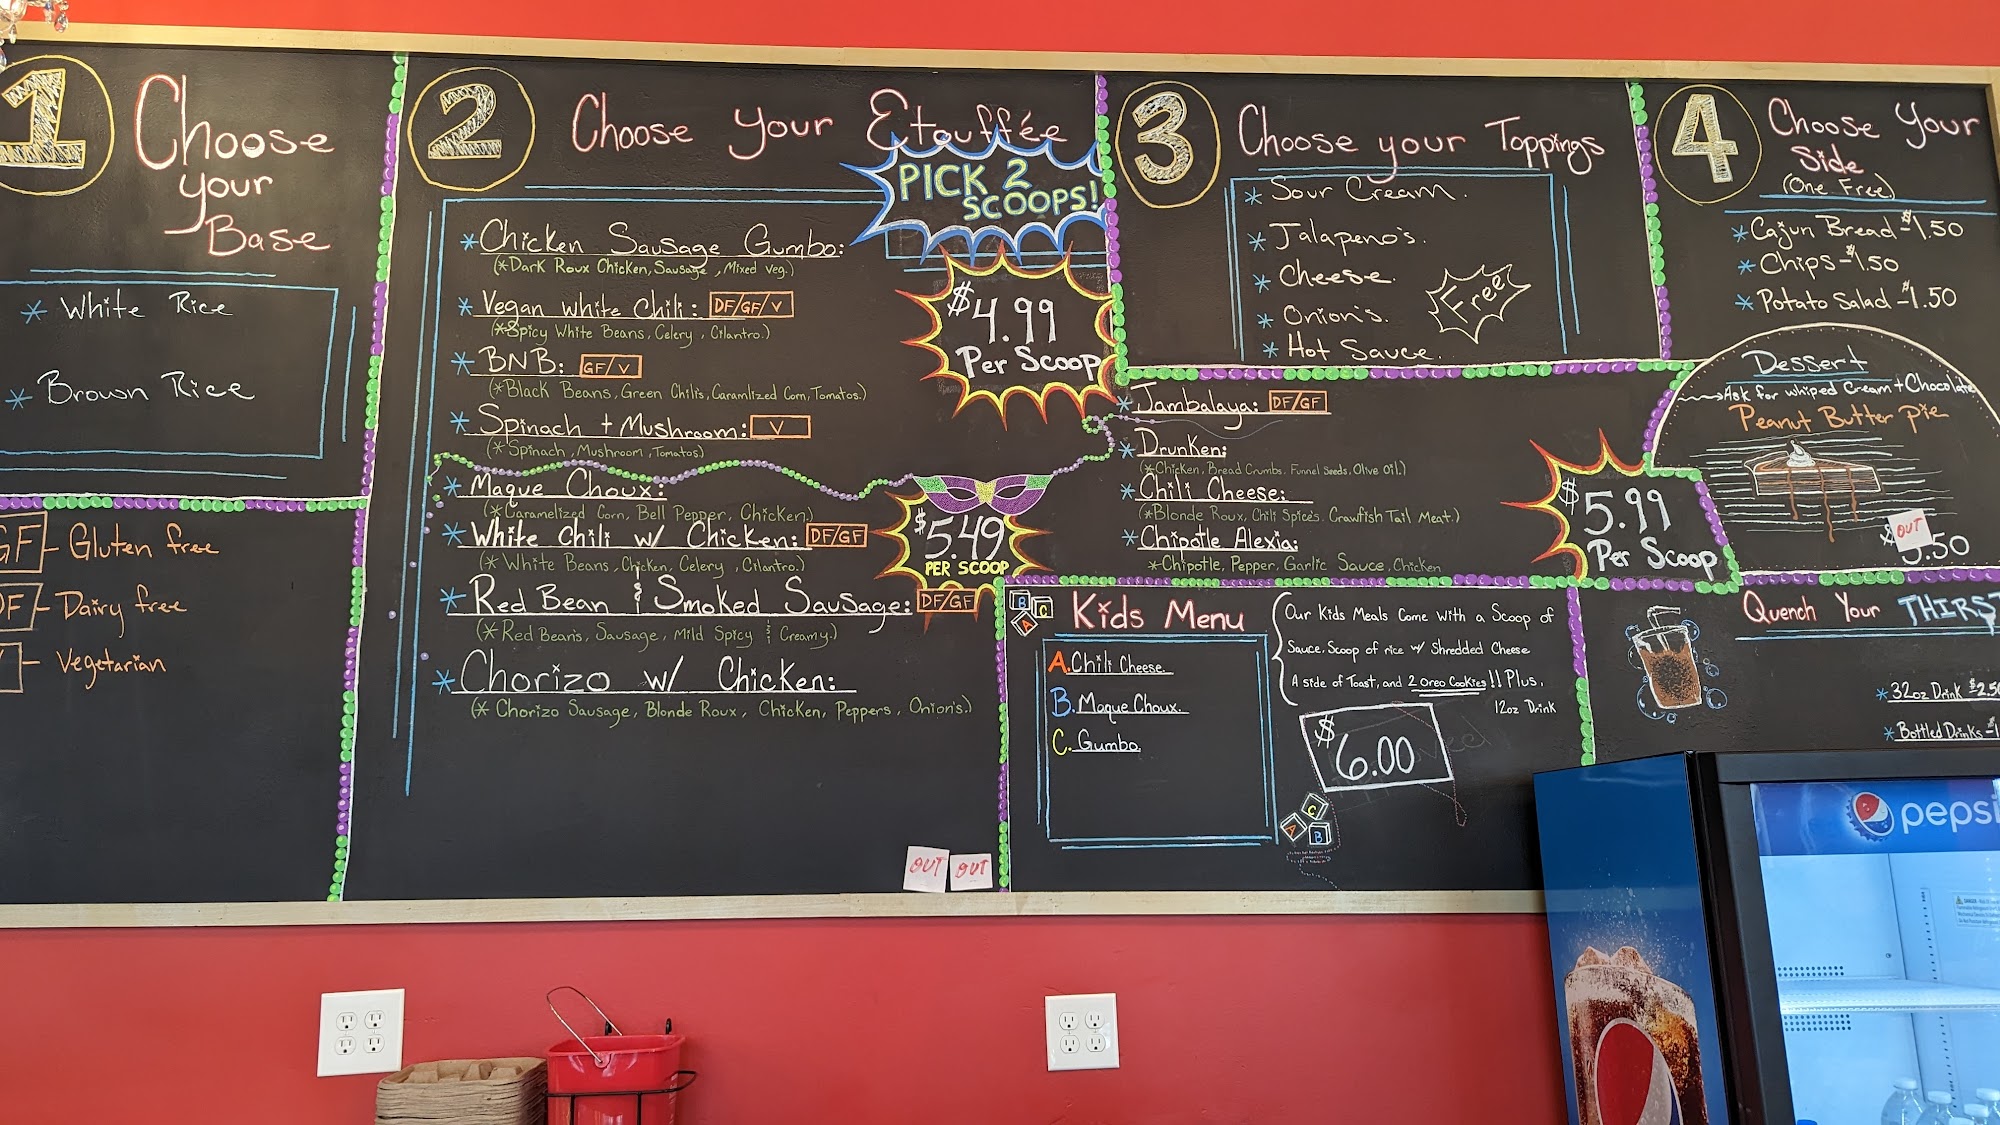 1 Choose
your
Base
* White Rice
* Brown Rice
GF - Gluten free
DF - Dairy free
V - Vegetarian
2 Choose your Etouffée
PICK 2
SCOOPS!
* Chicken Sausage Gumbo:
(*Dark Roux Chicken, Sausage, Mixed Veg.)
* Vegan white Chili: DF/GF/V
(*Spicy White Beans, Celery, Cilantro.)
* BNB: GF/V
(*Black Beans, Green Chili's, Caramlized Corn, Tomatos.)
* Spinach + Mushroom: V
(*Spinach, Mushroom, Tomatos)
$4.99
Per Scoop
* Maque Choux:
(*Caramelized Corn, Bell Pepper, Chicken.)
* White Chili w/ Chicken: DF/GF
(*White Beans, Chicken, Celery, Cilantro.)
* Red Bean & Smoked Sausage: DF/GF
(*Red Beans, Sausage, Mild Spicy & Creamy.)
* Chorizo w/ Chicken:
(* Chorizo Sausage, Blonde Roux, Chicken, Peppers, Onion's.)
$5.49
PER SCOOP
OUT OUT
3 Choose your Toppings
* Sour Cream.
* Jalapeno's.
* Cheese.
* Onion's.
* Hot Sauce.
Free
* Jambalaya: DF/GF
* Drunken:
(*Chicken, Bread Crumbs, Funnel Seeds, Olive Oil.)
* Chili Cheese:
(*Blonde Roux, Chili Spice's. Crawfish Tail Meat.)
* Chipotle Alexia:
*Chipotle, Pepper, Garlic Sauce, Chicken
$5.99
Per Scoop
4 Choose Your
Side
(One Free)
* Cajun Bread - $1.50
* Chips - $1.50
* Potato Salad - $1.50
Dessert
Ask for whiped Cream + Chocolate
Peanut Butter Pie
OUT
.50
Kids Menu
A. Chili Cheese.
B. Maque Choux.
C. Gumbo.
Our Kids Meals Come with a Scoop of
Sauce, Scoop of rice w/ Shredded Cheese
A side of Toast, and 2 Oreo Cookies!! Plus,
12oz Drink
$6.00
B
C
A
C
A
B
Quench Your THIRST
* 32oz Drink $2.50
* Bottled Drinks - $1
pepsi